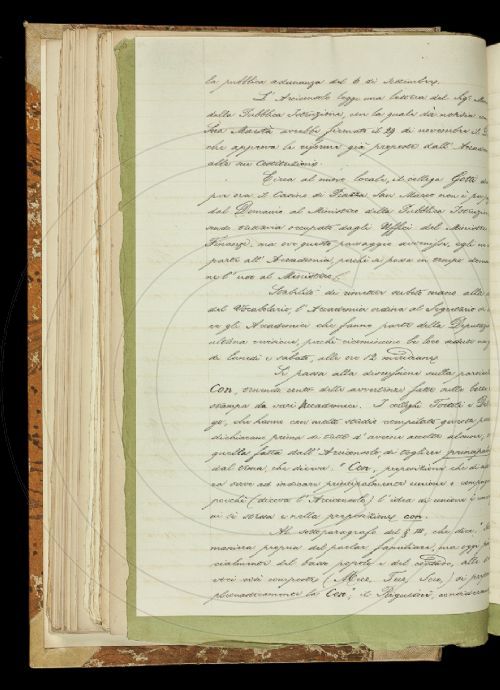 la pubblica adunanza del 6 di Settembre.
L'Arciconsolo legge una lettera del Sig.
della Pubblica Istruzione, con la quale dà notizia
Sua Maestà avrebbe firmato il 29 di novembre il
che approva le riforme già proposte dall'Accade
alle sue Costituzioni.
Circa al nuovo locale, il collega Gotti
per ora il Casino di Piazza San Marco non è
dal Demanio al Ministero della Pubblica Istruzio
tuttavia occupato dagli Uffici del Ministero
Finanze, ma ove questo passaggio avvenisse, egli
parte all'Accademia, perchè si possa in tempo
ne l'uso al Ministero.
Stabilito di rimetter subito mano alla
del Vocabolario, l'Accademia ordina al Segretario
gli Accademici che fanno parte della Deputaz
ultima revisione, perchè ricomincino le loro sedute
di lunedì e sabato, alle ore 12 meridiane.
Si passa alla discussione sulla particella
Con, tenendo conto delle avvertenze fatte nelle
stampa da varj Accademici. I colleghi Tortoli e
che hanno con molto studio compilato questa
dichiarano prima di tutto d'avere accolto alcune
quella fatta dall'Arciconsolo, di togliere principal
dal tema, che diceva: "Con, preposizione che
serve ad indicare principalmente unione e compagn
perchè (diceva l'Arciconsolo) l'idea di unione è
in sè stessa e nella preposizione con.
Al sottoparagrafo del § III, che dice:
maniera propria del parlar familiare, ma oggi
cialmente del basso popolo e del contado, alle
voci così composte (Meco, Teco, Seco) si
pleonasticamente la Con", il Rigutini